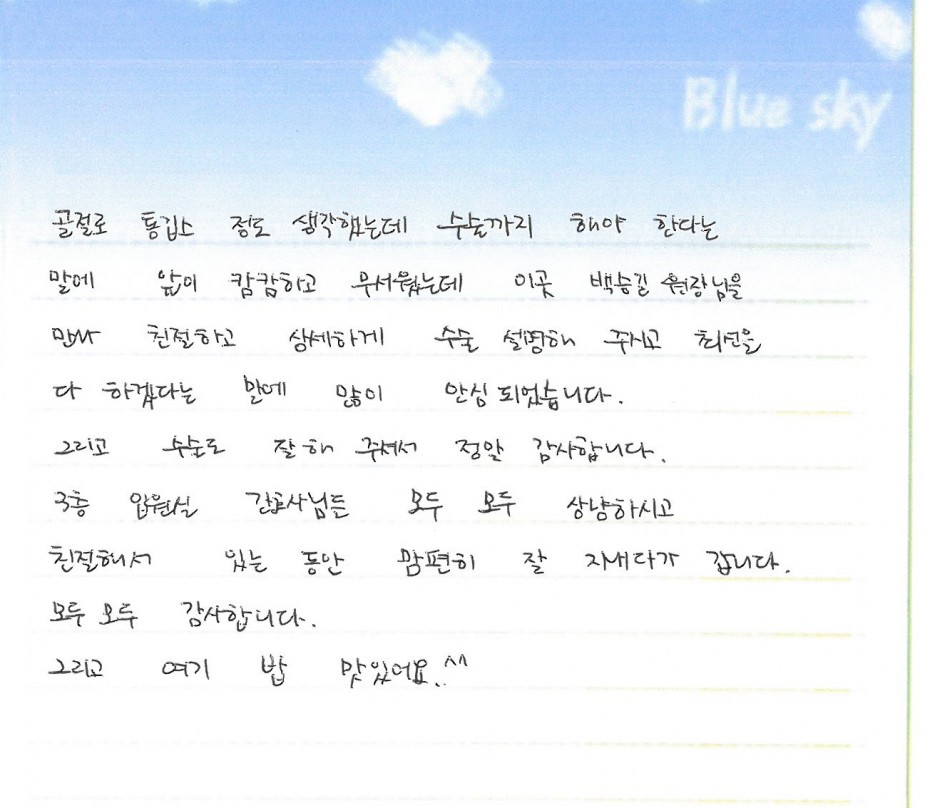 Blue sky
골절로 통깁스 정도 생각했는데 수술까지 해야 한다는
말에 앞이 캄캄하고 무서웠는데 이곳 백승길 원장님을
만나 친절하고 상세하게 수술 설명해 주시고 최선을
다 하겠다는 말에 많이 안심 되었습니다.
그리고 수술도 잘 해 주셔서 정말 감사합니다.
3층 입원실 간호사님들 모두 모두 상냥하시고
친절해서 있는 동안 맘편히 잘 지내다가 갑니다.
모두 모두 감사합니다.
그리고 여기 밥 맛있어요.. ^^